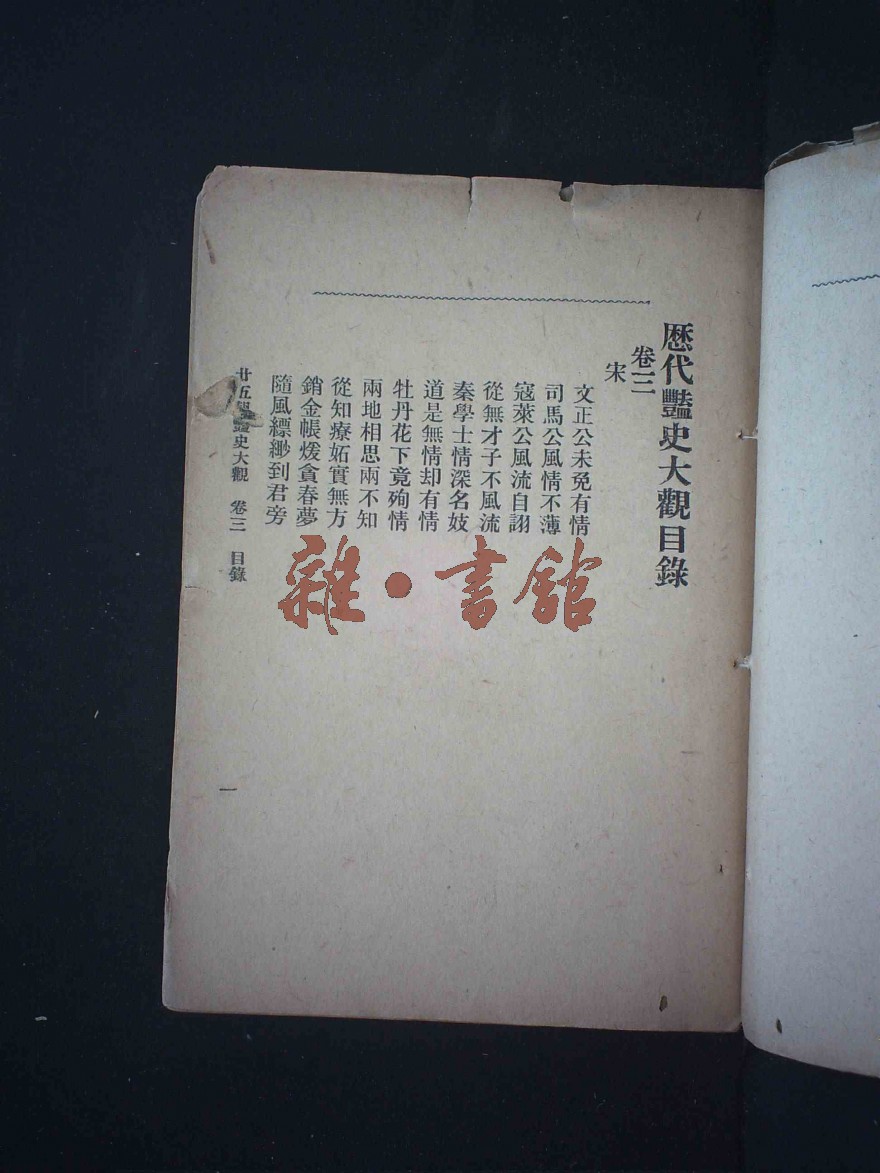 歷代豔史大觀目錄
卷三
宋
文正公未免有情
司馬公風情不薄
寇萊公風流自詡
從無才子不風流
秦學士情深名妓
道是無情却有情
牡丹花下竟殉情
兩地相思兩不知
從知療妬實無方
銷金帳煖貪春夢
隨風縹緲到君旁
廿五豔史大觀 卷三 目錄
一
雜·書館